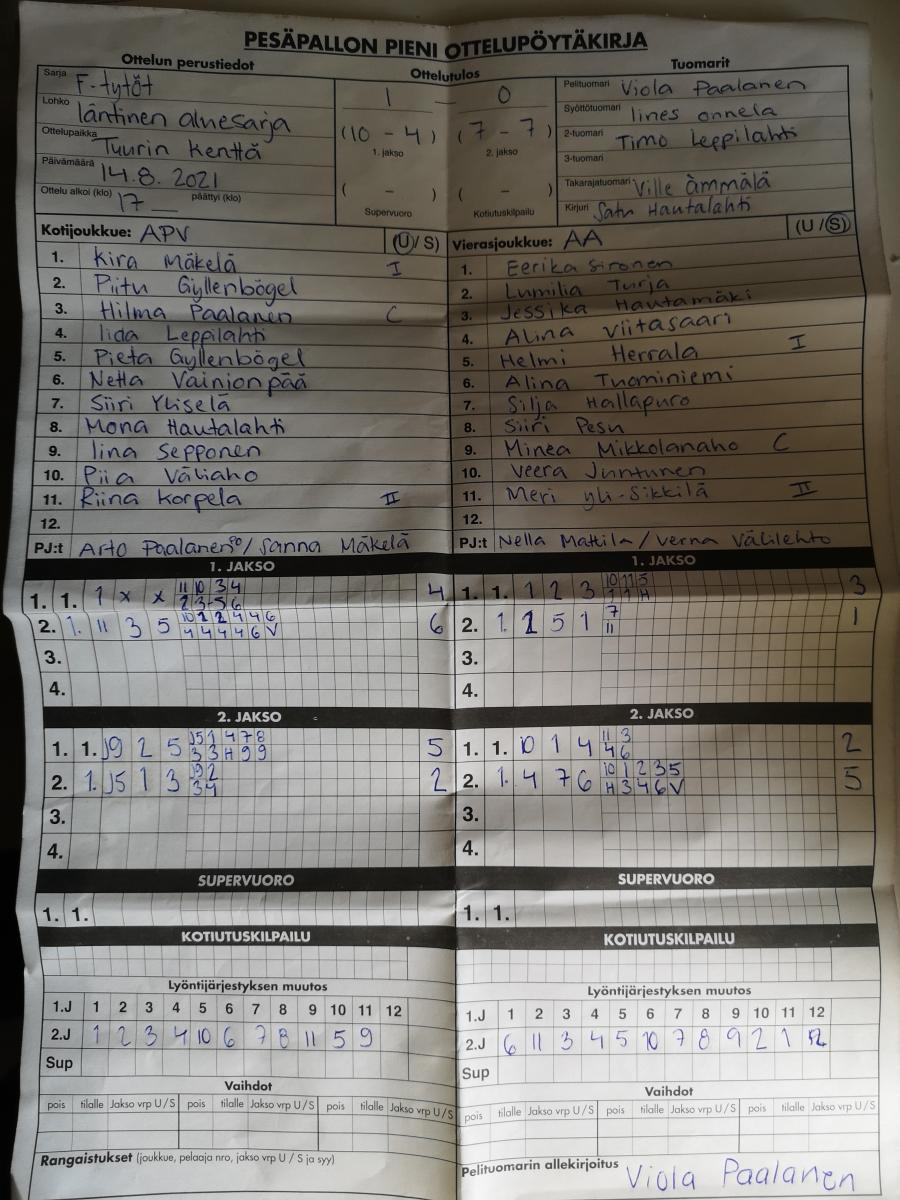 PESÄPALLON PIENI OTTELUPÖYTÄKIRJA
Ottelun perustiedot
Sarja F-tytöt
Lohko läntinen aluesarja
Ottelupaikka Tuurin kenttä
Päivämäärä 14.8. 2021
Ottelu alkoi (klo) 17 päättyi (klo)
Ottelutulos
1 — 0
(10 - 4) (7 - 7)
1. jakso 2. jakso
( - ) ( - )
Supervuoro Kotiutuskilpailu
Tuomarit
Pelituomari Viola Paalanen
Syöttötuomari Iines Onnela
2-tuomari Timo Leppilahti
3-tuomari
Takarajatuomari Ville Ämmälä
Kirjuri Satu Hautalahti
Kotijoukkue: APV (U / S)
1. Kira Mäkelä I
2. Piitu Gyllenbögel
3. Hilma Paalanen C
4. Iida Leppilahti
5. Pieta Gyllenbögel
6. Netta Vainionpää
7. Siiri Yliselä
8. Mona Hautalahti
9. Iina Sepponen
10. Piia Väliaho
11. Riina Korpela II
12.
PJ:t Arto Paalanen / Sanna Mäkelä
Vierasjoukkue: AA (U / S)
1. Eerika Sironen
2. Lumilia Turja
3. Jessika Hautamäki
4. Alina Viitasaari
5. Helmi Herrala I
6. Alina Tuominiemi
7. Silja Hallapuro
8. Siiri Pesu
9. Minea Mikkolanaho C
10. Veera Juntunen
11. Meri Yli-Sikkilä II
12.
PJ:t Nella Mattila / Verna Välilehto
1. JAKSO
1. 1. 1 x x 11 10 3 4 4
2 3 5 6
2. 1. 11 3 5 10 1 2 4 4 6 6
4 4 4 4 6 V
3.
4.
1. JAKSO
1. 1. 1 2 3 10 11 5 3
1 1 H
2. 1. 1 5 1 7 1
11
3.
4.
2. JAKSO
1. 1. 9 2 5 5 1 4 7 8 5
3 3 H 9 9
2. 1. 5 1 3 9 2 2
3 4
3.
4.
2. JAKSO
1. 1. 10 1 4 11 3 2
4 6
2. 1. 4 7 6 10 1 2 3 5 5
H 3 4 6 V
3.
4.
SUPERVUORO
1. 1.
SUPERVUORO
1. 1.
KOTIUTUSKILPAILU
KOTIUTUSKILPAILU
Lyöntijärjestyksen muutos
1.J 1 2 3 4 5 6 7 8 9 10 11 12
2.J 1 2 3 4 10 6 7 8 11 5 9
Sup
Lyöntijärjestyksen muutos
1.J 1 2 3 4 5 6 7 8 9 10 11 12
2.J 6 11 3 4 5 10 7 8 9 2 1
Sup
Vaihdot
pois tilalle Jakso vrp U / S pois tilalle Jakso vrp U / S pois tilalle Jakso vrp U / S
Vaihdot
pois tilalle Jakso vrp U / S pois tilalle Jakso vrp U / S pois tilalle Jakso vrp U / S
Rangaistukset (joukkue, pelaaja nro, jakso vrp U / S ja syy)
Pelituomarin allekirjoitus Viola Paalanen